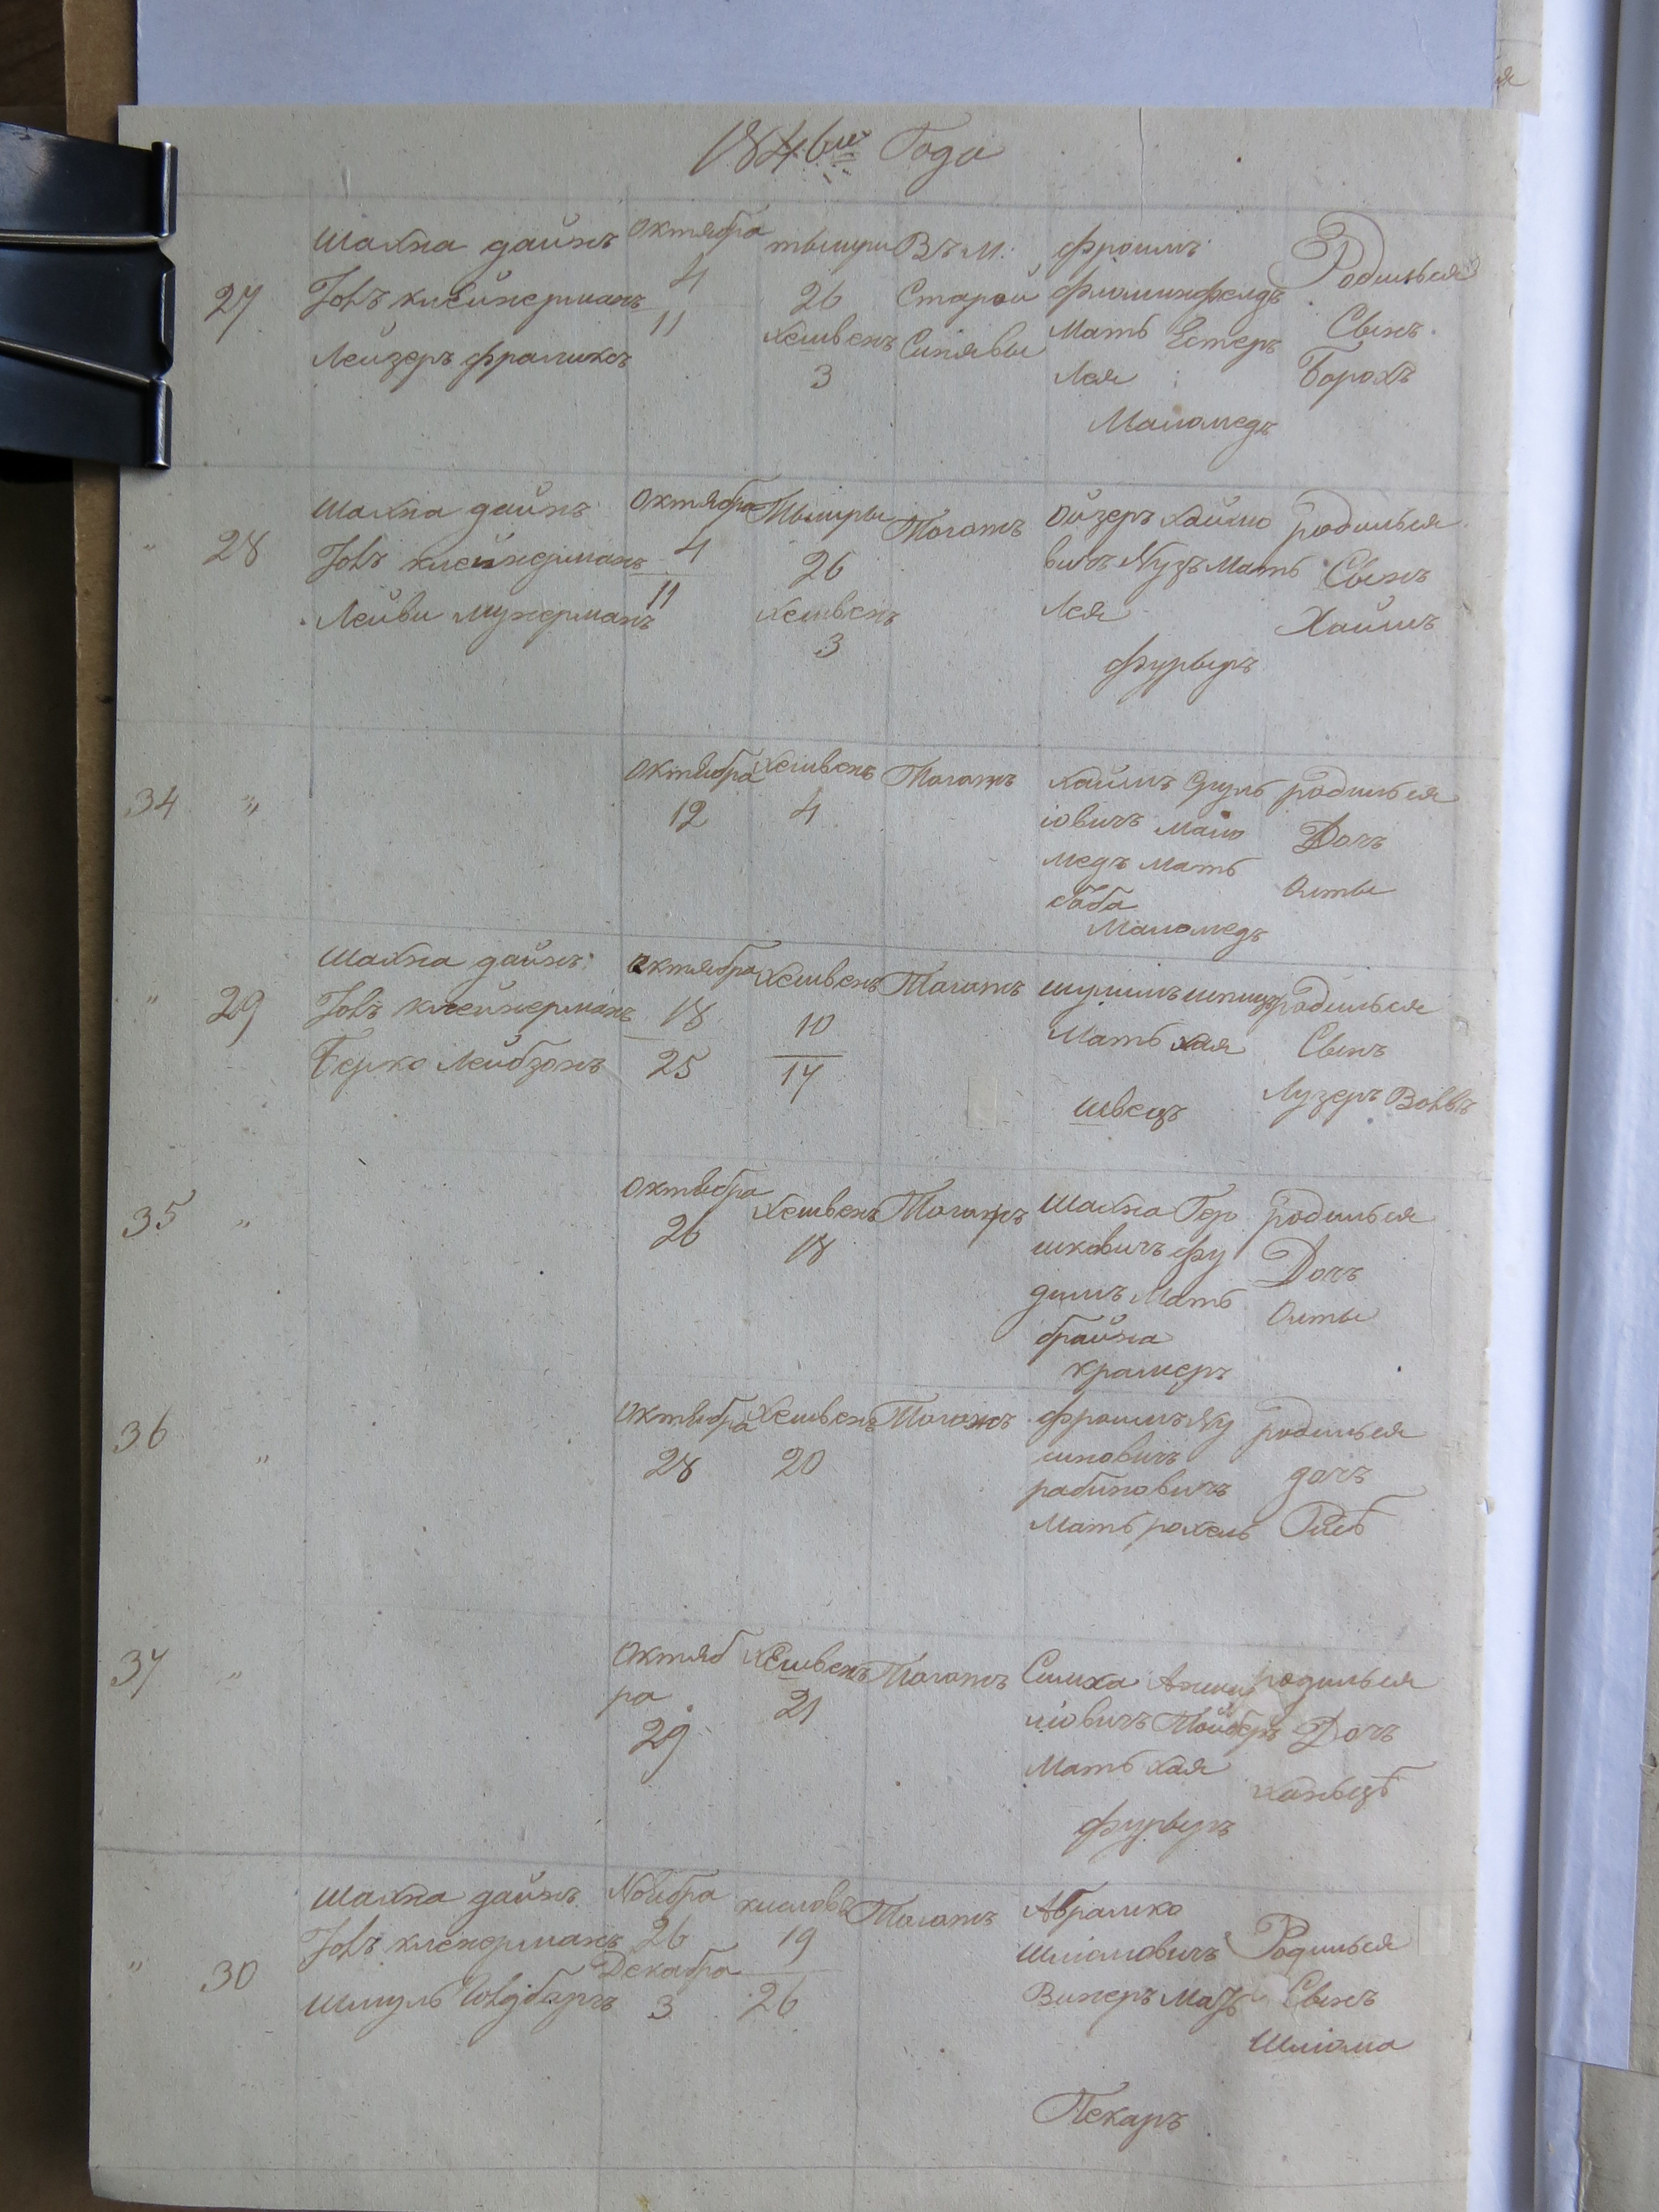 1846го Года
27
Шахна дайнъ
Іонъ клейнерманъ
Лейзеръ фраликсъ
Октября
4
11
тышри
26
Хешвенъ
3
Въ М:
Старой
Синявы
фроимъ
Мать Естеръ
Лея
Маломедъ
Родилься
Сынъ
Борохъ
" 28
Шахна дайнъ
Іонъ клейнерманъ
Лейви мунерманъ
Октября
4
11
Тышры
26
Хешвенъ
3
Тогожъ
Ойзеръ Хаймо
вичъ Нузъ Мать
Лея
фурыръ
родилься
Сынъ
Хаимъ
34 "
Октября
12
Хешвенъ
4
Тогожъ
Хаимъ Сруль
іовичъ Мало
медъ Мать
баба
Маломедъ
родилься
Дочъ
" 29
Шахна дайнъ
Іонъ клейнерманъ
Берко Лейбзонъ
октября
18
25
Хешвенъ
10
17
Тогожъ
Мать хая
швецъ
родилься
Сынъ
Лузеръ
35 "
Октября
26
Хешвенъ
18
Тогожъ
Шахна Гер
шковичъ фу
димъ Мать
брайна
крамеръ
родилься
Дочъ
36 "
Октября
28
Хешвенъ
20
Тогожъ
фроимъ Ну
синовичъ
рабиновичъ
Мать рохель
родилься
дочъ
37 "
Октяб
ря
29
Хешвенъ
21
Тогожъ
Симха
Мать Хая
фурыръ
родилься
Дочъ
" 30
Шахна дайнъ
Іонъ кленерманъ
Шмуль
Ноября
26
Декабря
3
кисловъ
19
26
Тогожъ
Абрамко
Шліомовичъ
Винеръ Мать
Пекаръ
Родилься
Сынъ
Шліома